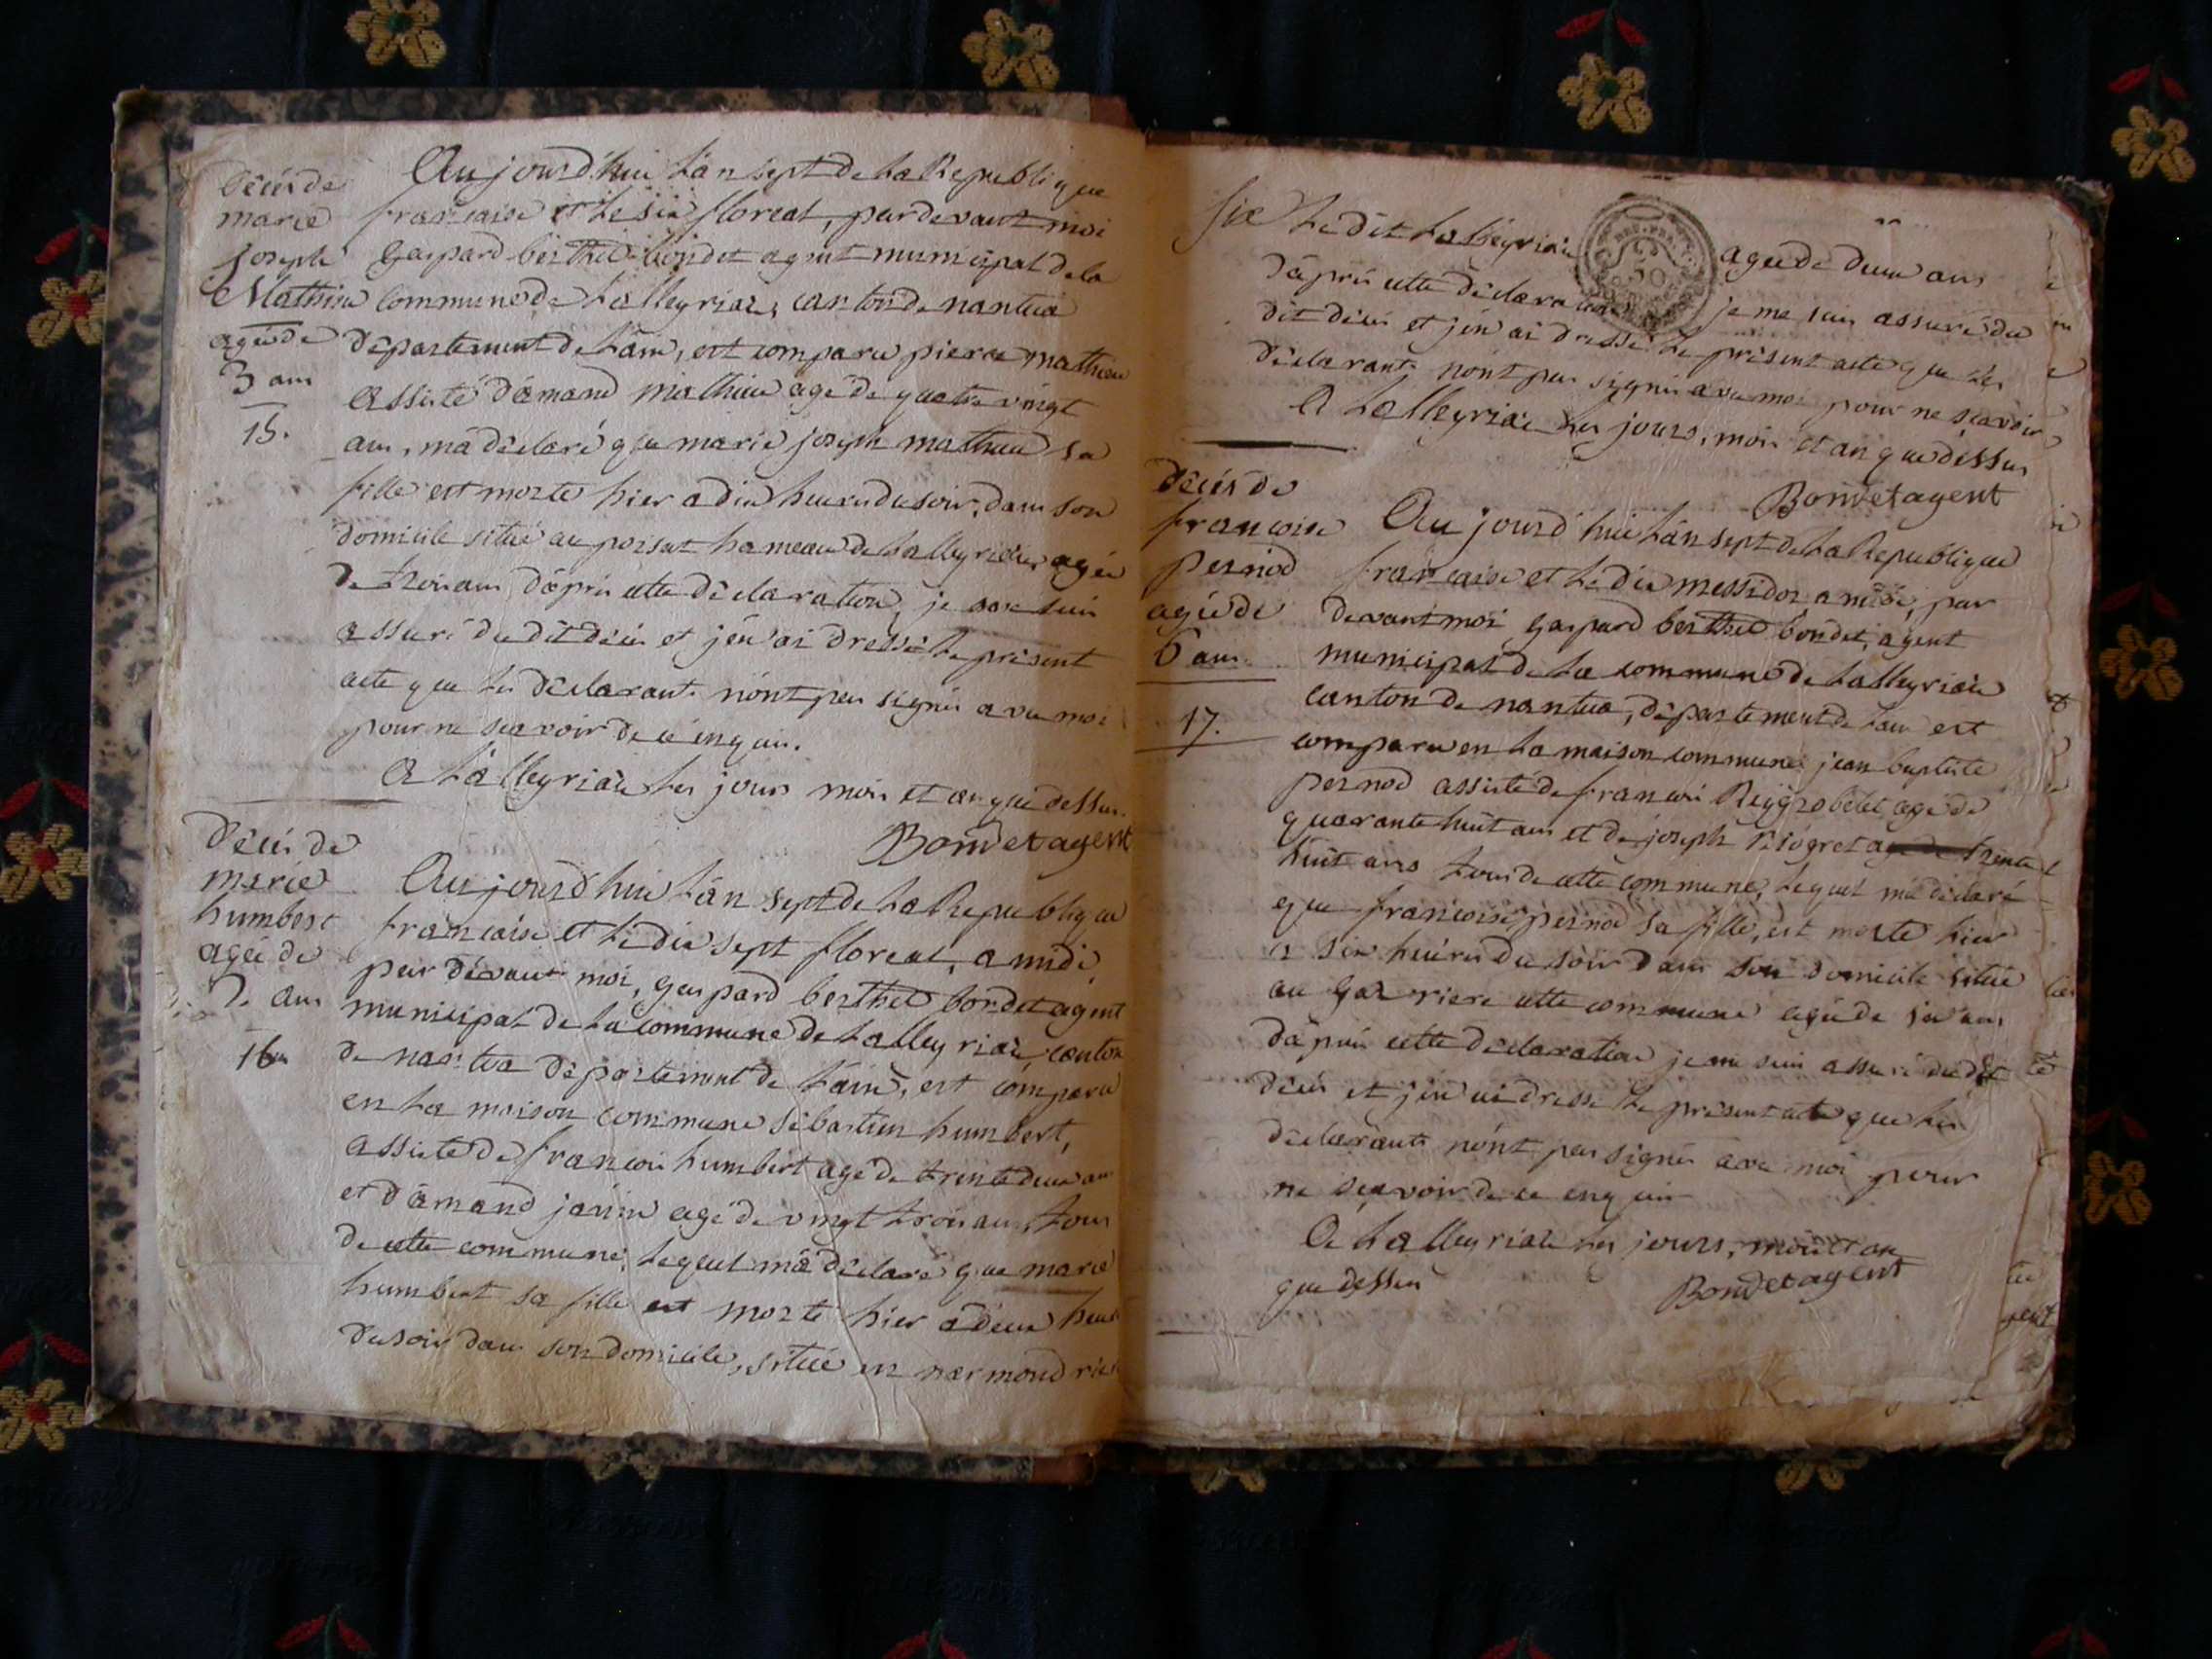 décès de
marie
joseph
Mathieu
agée de
3 ans
15.
Aujourd'hui l'an sept de la Republique
francaise et le six floreal, pardevant moi
gaspard berthet bondet agent municipal de la
commune de Lalleyriat, canton de nantua
département de l'ain, est comparu pierre mathieu
assisté d'amand mathieu agé de quatre vingt
ans, m'a déclaré que marie joseph mathieu sa
fille est morte hier a dix heures du soir, dans son
domicile situé au poisat hameau de Lalleyriat, agée
de trois ans, d'après cette déclaration, je me suis
assuré du dit décès et j'en ai dressé le présent
acte que les déclarants n'ont pas signés avec moi
pour ne scavoir de ce enquis.
A Lalleyriat les jours mois et an que dessus.
Bondet agent
décés de
marie
humbert
agée de
2 ans
16
Aujourd'hui l'an sept de la Republique
francaise et le dix sept floreal, a midi
par devant moi, gaspard berthet bondet agent
municipal de la commune de Lalleyriat, canton
de nantua département de l'ain, est comparu
en la maison commune sébastien humbert,
assisté de francois humbert agé de trente deux ans
et d'amand agé de vingt trois ans, tous
de cette commune, lequel m'a déclaré que marie
humbert sa fille est morte hier a deux heures
du soir dans son domicile, situé en
six le dit Lalleyriat agée de deux ans
d'après cette déclaration je me suis assuré du
dit décès et j'en ai dressé le présent acte que les
déclarants n'ont pas signés avec moi pour ne scavoir
A Lalleyriat les jours, mois et an que dessus
Bondet agent
décés de
francoise
pernod
agée de
6 ans
17.
Aujourd'hui l'an sept de la Republique
francaise et le dix messidor a midi, par
devant moi gaspard berthet bondet, agent
municipal de la commune de Lalleyriat
canton de nantua, département de l'ain est
comparu en la maison commune jean baptiste
pernod assisté de francois agé de
quarante huit ans et de joseph agé de trente
huit ans tous de cette commune, lequel m'a déclaré
que francoise pernod sa fille, est morte hier
a six heures du soir dans son domicile situé
au cette commune agée de six ans
d'après cette déclaration je me suis assuré du dit
décès et j'en ai dressé le présent acte que les
déclarants n'ont pas signés avec moi pour
ne scavoir de ce enquis
A Lalleyriat les jours, mois et an
que dessus
Bondet agent